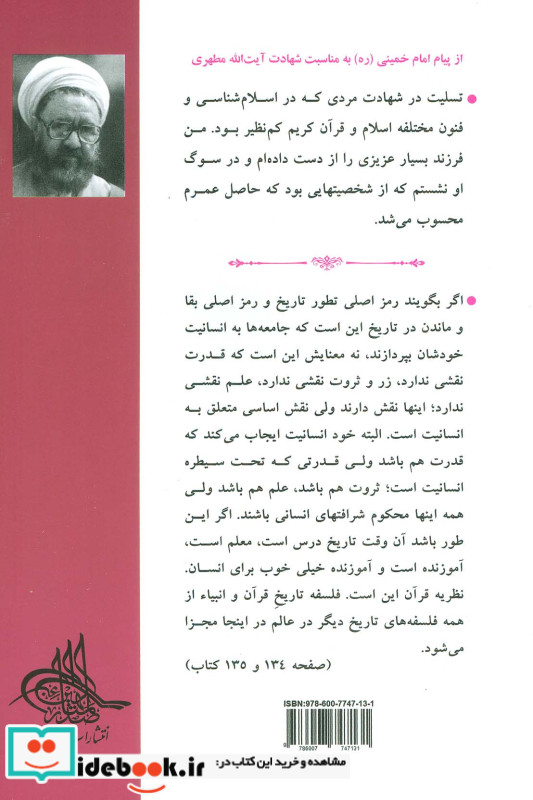 از پیام امام خمینی (ره) به مناسبت شهادت آیت‌الله مطهری
● تسلیت در شهادت مردی که در اسلام‌شناسی و
فنون مختلفه اسلام و قرآن کریم کم‌نظیر بود. من
فرزند بسیار عزیزی را از دست داده‌ام و در سوگ
او نشستم که از شخصیتهایی بود که حاصل عمرم
محسوب می‌شد.
● اگر بگویند رمز اصلی تطور تاریخ و رمز اصلی بقا
و ماندن در تاریخ این است که جامعه‌ها به انسانیت
خودشان بپردازند، نه معنایش این است که قدرت
نقشی ندارد، زر و ثروت نقشی ندارد، علم نقشی
ندارد؛ اینها نقش دارند ولی نقش اساسی متعلق به
انسانیت است. البته خود انسانیت ایجاب می‌کند که
قدرت هم باشد ولی قدرتی که تحت سیطره
انسانیت است؛ ثروت هم باشد، علم هم باشد ولی
همه اینها محکوم شرافتهای انسانی باشند. اگر این
طور باشد آن وقت تاریخ درس است، معلم است،
آموزنده است و آموزنده خیلی خوب برای انسان.
نظریه قرآن این است. فلسفه تاریخِ قرآن و انبیاء از
همه فلسفه‌های تاریخ دیگر در عالم در اینجا مجزا
می‌شود.
(صفحه ۱۳۴ و ۱۳۵ کتاب)
ISBN:978-600-7747-13-1
9 786007 747131
مشاهده و خرید این کتاب در:
idebook.ir